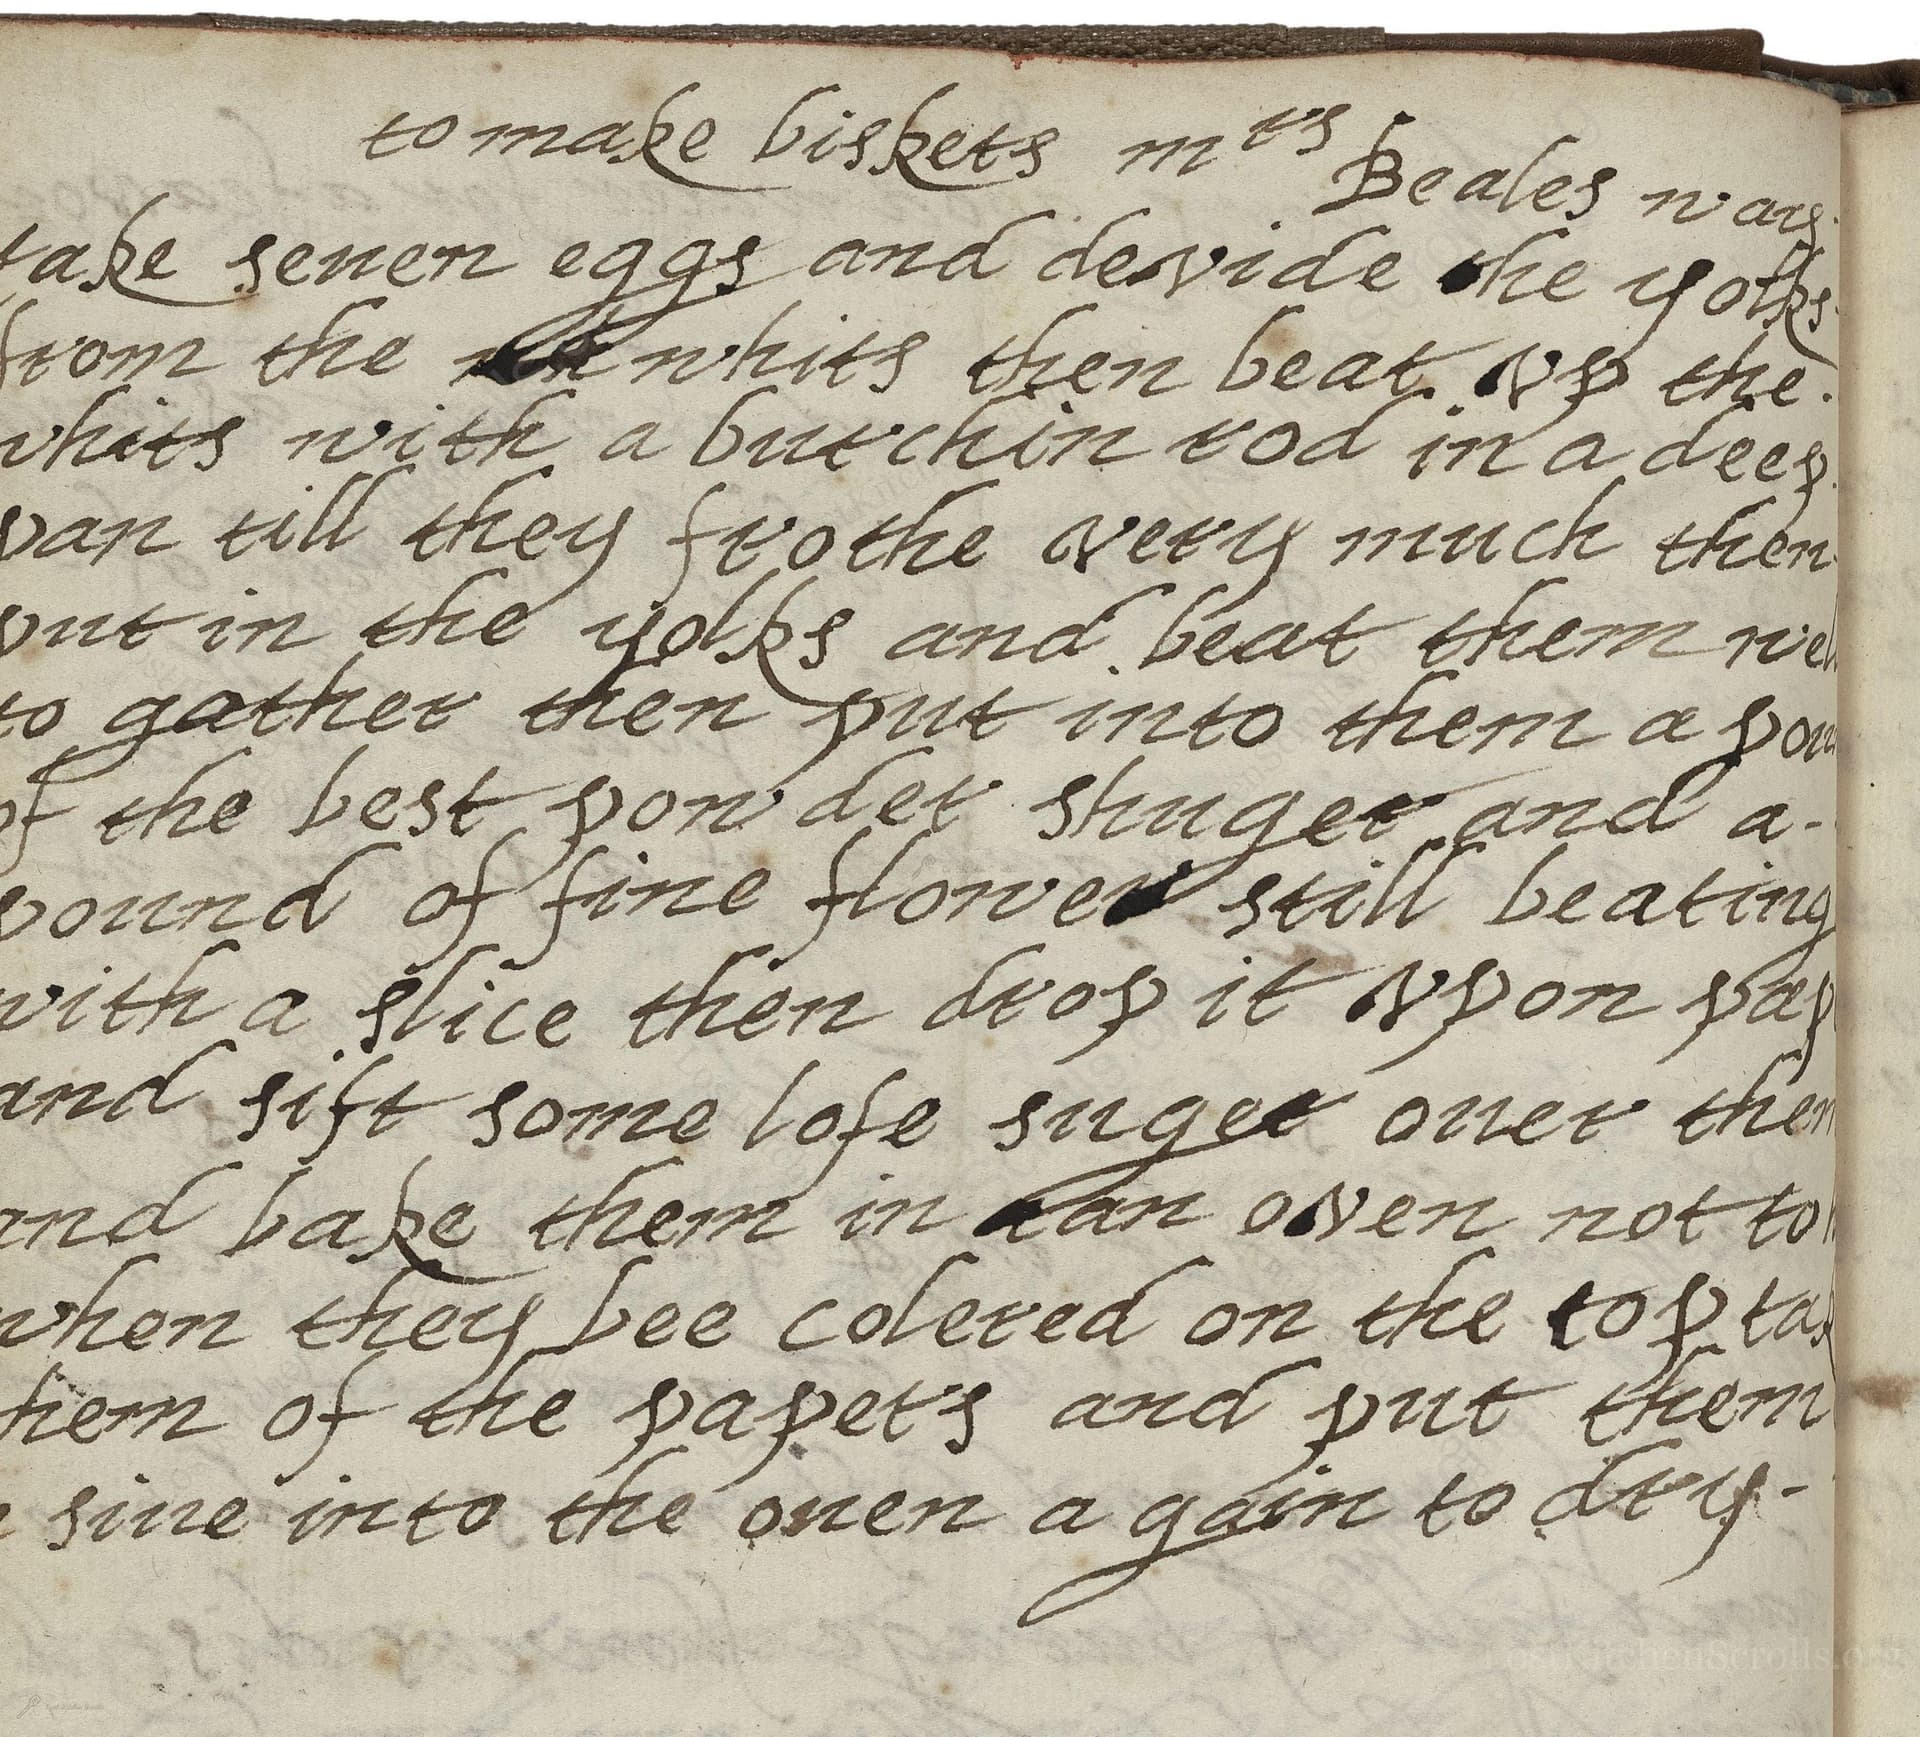 to make biskets mrs Beales way
take seuen eggs and devide the yolks
from the whits then beat vp the
whits with a burchin rod in a deep
pan till they frothe very much then
put in the yolks and beat them wel
to gather then put into them a poun
of the best powder shuger and a-
pound of fine flower still beating
with a slice then drop it vpon pap
and sift some lofe suger ouer them
and bake them in an oven not to
when they bee colered on the top tak
them of the papers and put them
sine into the ouen a gain to dry-
LostKitchenScrolls.org